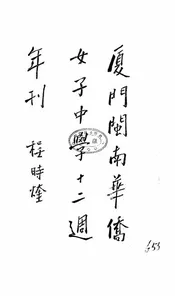 厦門閩南華僑
女子中學十二週
年刊 程時煃
653